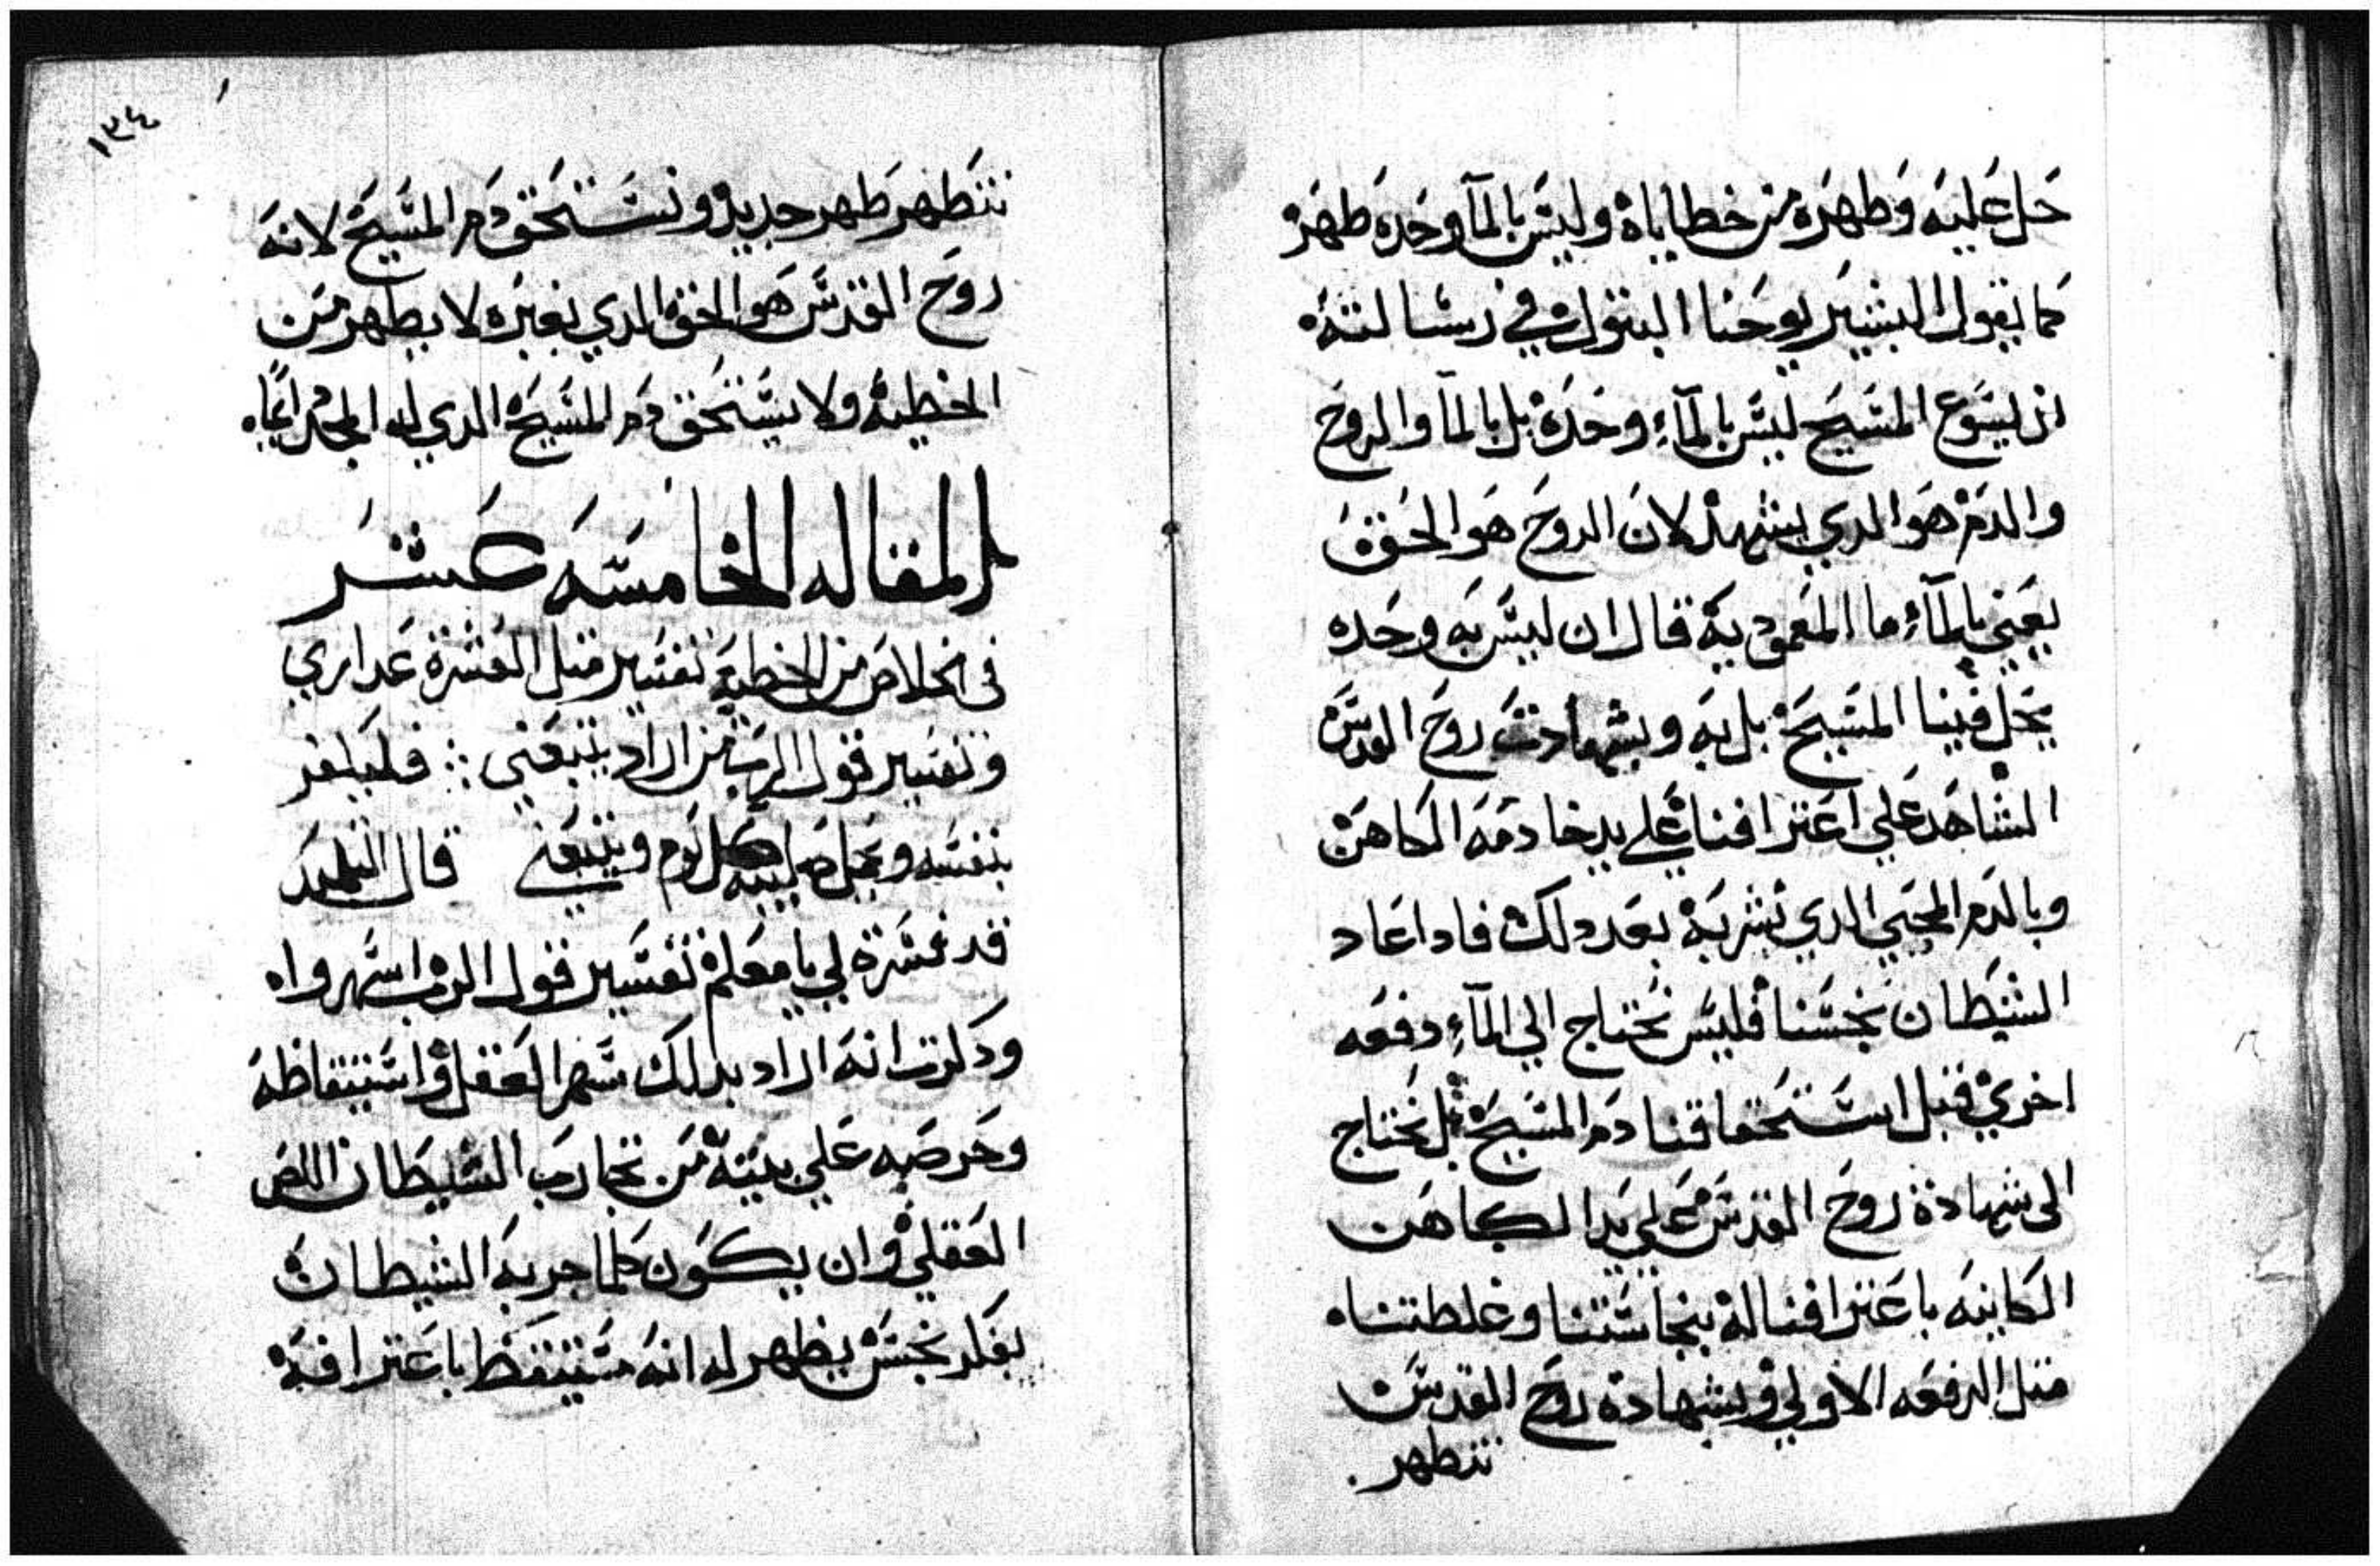 حل عليه وطهره من خطاياه وليس بالمآ وحده طهره
كما يقول البشير يوحنا البتول في رسالته
ان يسوع المسيح ليس بالمآء وحده بل بالمآ والروح
والدم هو الدي يشهد لان الروح هو الحق
يعني بالمآء ما المعموديه قال ان ليس به وحده
يحل فينا المسيح بل به وبشهادت روح القدس
الشاهد علي اعترافنا علي يد خادمه الكاهن
وبالدم المحيي الدي نشربه بعد دلك فادا عاد
الشيطان نجسنا فليس نحتاج الي المآء دفعه
اخري قبل استحقاقنا دم المسيح بل نحتاج
الى شهادة روح القدس علي يد الكاهن
الكاينه باعترافنا له بنجاستنا وغلطتناه
متل الدفعه الاولي وبشهادة روح القدس
نتطهر
١٣٤
نتطهر طهر جديد ونستحق دم المسيح لانه
روح القدس هو الحق الدي بغيره لا يطهر من
الخطيه ولا يستحق دم المسيح الدي له المجد ايماه
المقاله الخامسه عشر
فى الخلاص من الخطيه تفسير متل العشرة عداري
وتفسير قول الرب من اراد يتبعني فليكفر
بنفسه ويحمل صليبه كل يوم ويتبعني قال التلميد
قد فسرة لي يا معلم تفسير قول الرب اسهرواه
ودكرت انه اراد بدلك سهر العقل واستيقاظه
وحرصه علي بيته من تجارب الشيطان اللص
العقلي وان يكون كلما جربه الشيطان
بفكر نجس يظهر له انه مستيقظ باعترافه